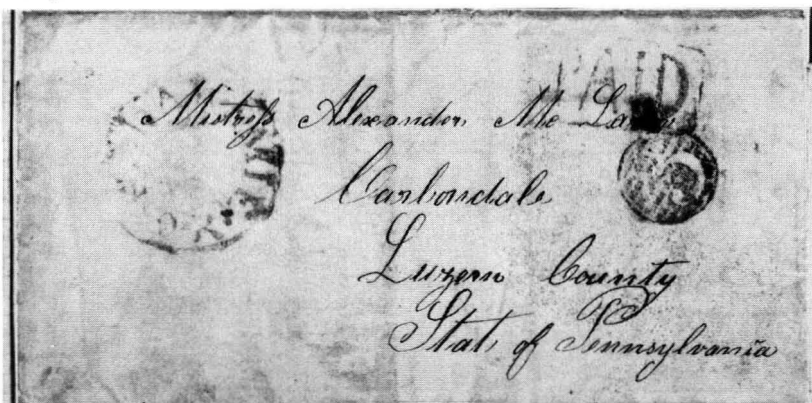 PAID
Mistress Alexander Mc
Carbondale
Luzern County
State of Pennsylvania